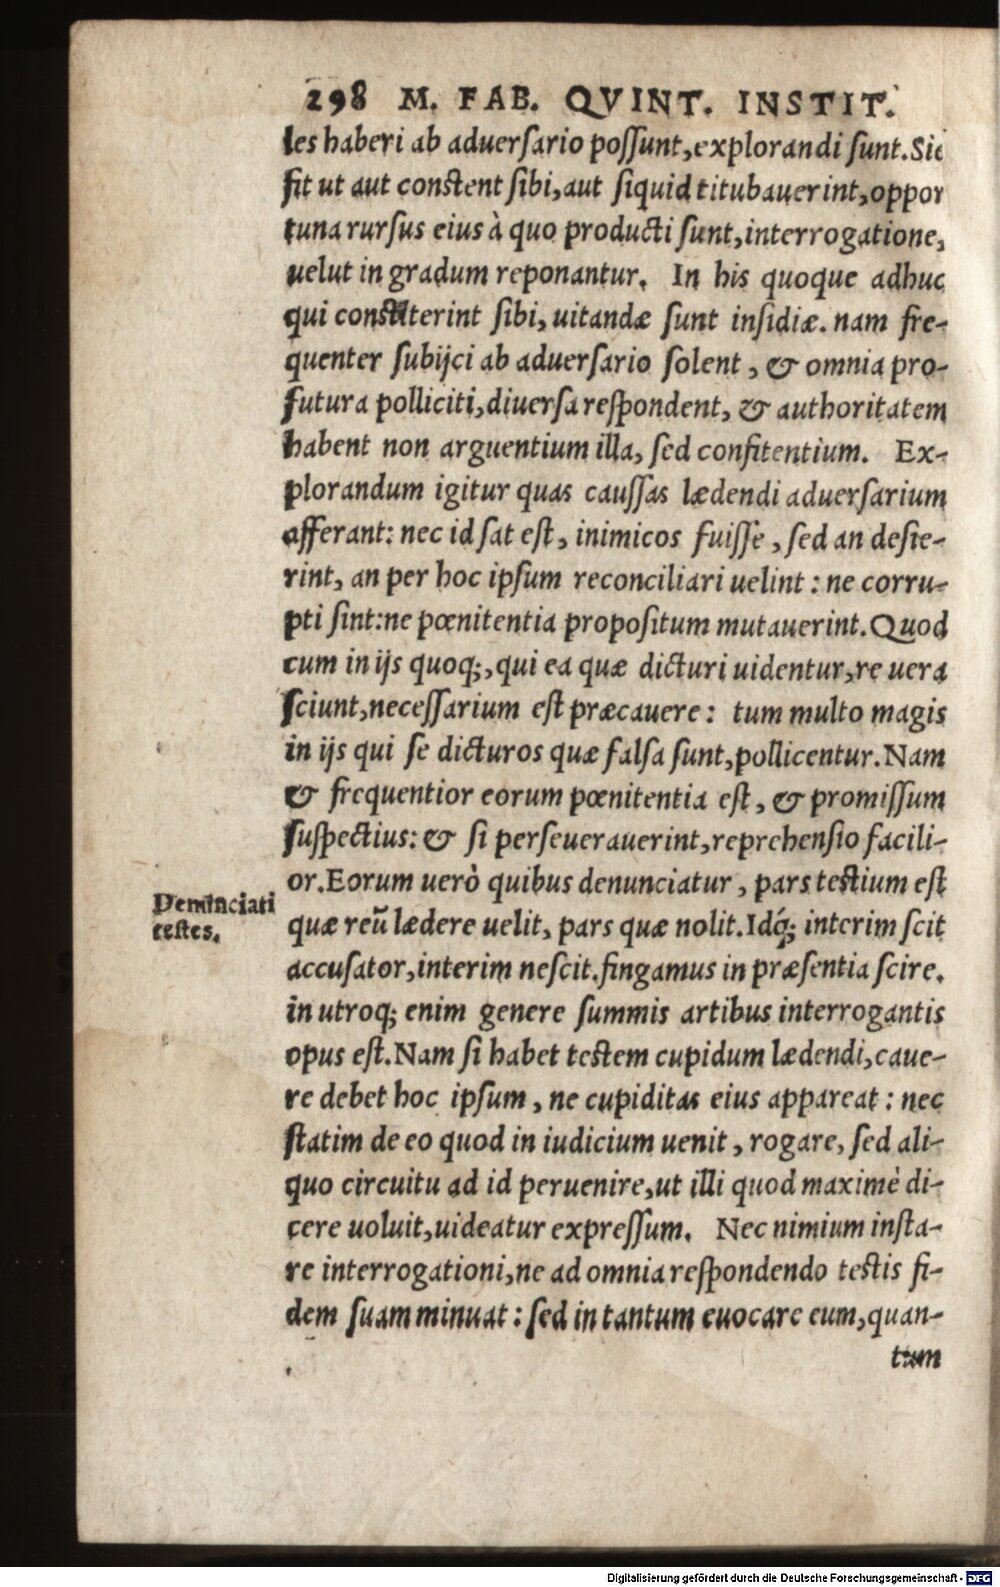 298 M. FAB. QVINT. INSTIT.
les haberi ab aduersario possunt, explorandi sunt. Sic
fit ut aut constent sibi, aut siquid titubauerint, oppor
tuna rursus eius à quo producti sunt, interrogatione,
uelut in gradum reponantur. In his quoque adhuc
qui constiterint sibi, uitandæ sunt insidiæ. nam fre-
quenter subijci ab aduersario solent, & omnia pro-
futura polliciti, diuersa respondent, & authoritatem
habent non arguentium illa, sed confitentium. Ex-
plorandum igitur quas caussas lædendi aduersarium
afferant: nec id sat est, inimicos fuisse, sed an desie-
rint, an per hoc ipsum reconciliari uelint: ne corru-
pti sint: ne pœnitentia propositum mutauerint. Quod
cum in ijs quoq;, qui ea quæ dicturi uidentur, re uera
sciunt, necessarium est præcauere: tum multo magis
in ijs qui se dicturos quæ falsa sunt, pollicentur. Nam
& frequentior eorum pœnitentia est, & promissum
suspectius: & si perseuerauerint, reprehensio facili-
or. Eorum uerò quibus denunciatur, pars testium est
Denunciati
testes.
quæ reū lædere uelit, pars quæ nolit. Idq́; interim scit
accusator, interim nescit. fingamus in præsentia scire.
in utroq; enim genere summis artibus interrogantis
opus est. Nam si habet testem cupidum lædendi, caue-
re debet hoc ipsum, ne cupiditas eius appareat: nec
statim de eo quod in iudicium uenit, rogare, sed ali-
quo circuitu ad id peruenire, ut illi quod maximè di-
cere uoluit, uideatur expressum. Nec nimium insta-
re interrogationi, ne ad omnia respondendo testis fi-
dem suam minuat: sed in tantum euocare eum, quan-
tum
Digitalisierung gefördert durch die Deutsche Forschungsgemeinschaft - DFG